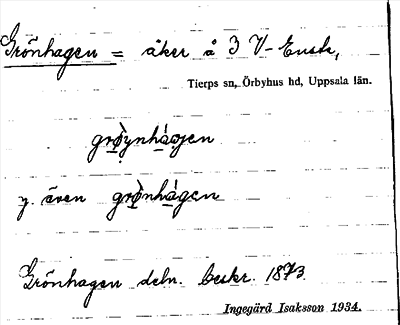 Grönhagen = åker å 3 V-Ensk,
Tierps sn, Örbyhus hd, Uppsala län.
y. även
Grönhagen deln. beskr. 1873.
Ingegärd Isaksson 1934.